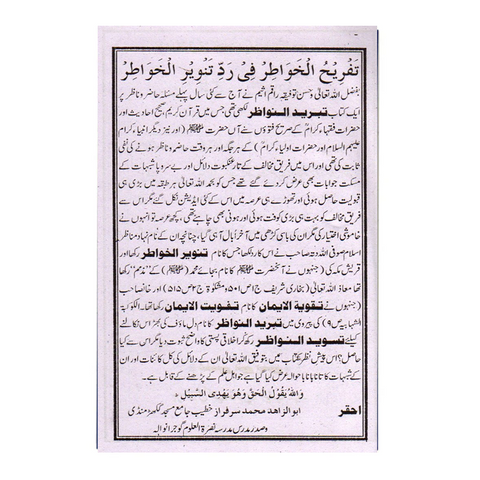 تَفْرِیْحُ الْخَوَاطِرْ فِیْ رَدِّ تَنْوِیْرِ الْخَوَاطِرْ
بفضل اللہ تعالیٰ وحسن توفیقہ راقم اثیم نے آج سے کئی سال پہلے مسئلہ حاضر و ناظر پر
ایک کتاب تبرید النواظر لکھی تھی جس میں قرآن کریم، صحیح احادیث اور
حضرات فقہاء کرامؒ کے صریح فتوؤں سے آں حضرت (ﷺ) (اور نیز دیگر انبیاء کرام
علیہم السلام اور حضرات اولیاء کرامؒ) کے ہر جگہ اور ہر وقت حاضر و ناظر ہونے کی نفی
ثابت کی تھی اور اس میں فریق مخالف کے تارِ عنکبوت دلائل اور بے سروپا شبہات کے
مسکت جوابات بھی عرض کر دئے گئے تھے جس کو بحمد اللہ تعالیٰ ہر طبقہ میں بڑی ہی
قبولیت حاصل ہوئی اور تھوڑے ہی عرصہ میں اس کے کئی ایڈیشن نکل گئے مگر اس سے
فریق مخالف کو بہت ہی بڑی کوفت ہوئی اور ہونی بھی چاہئے تھی، کچھ عرصہ تو انہوں نے
خاموشی اختیار کی مگر ان کی باسی کڑھی میں آخر ابال آ ہی گیا، چنانچہ ان کے نام نہاد مناظر
اسلام صوفی اللہ دتہ صاحب نے اس کا رد لکھا جس کا نام تنویر الخواطر رکھا اور
قریش مکہ کی (جنہوں نے آنحضرت (ﷺ) کا نام بجائے محمد (ﷺ) کے "مذمم" رکھا
تھا معاذ اللہ تعالیٰ (بخاری شریف ج۱ ص۵۰۱ و مشکوٰۃ ج۲ ص۵۱۵) اور خانصاحب
(جنہوں نے تقویۃ الایمان کا نام تفویت الایمان رکھا تھا۔ الکوکبۃ
الشہابیہ ص۹) کی پیروی میں تبرید النواظر کا نام دل ماؤف کی بھڑاس نکالنے
کیلئے تسوید النواظر رکھ کر اخلاقی پستی کا واضح ثبوت دیا مگر اس سے کیا
حاصل؟ اس پیش نظر کتاب میں بتوفیق اللہ تعالیٰ ان کے دلائل کی کل کائنات اور ان
کے شبہات کا تانا بانا باحوالہ عرض کیا گیا ہے جو اہل علم کے پڑھنے کے قابل ہے۔
وَاللّٰہُ یَقُوْلُ الْحَقَّ وَھُوَ یَھْدِی السَّبِیْلَ
احقر ابو الزاہد محمد سرفراز خطیب جامع مسجد گکھڑ منڈی
وصدر مدرس مدرسہ نصرۃ العلوم گوجرانوالہ